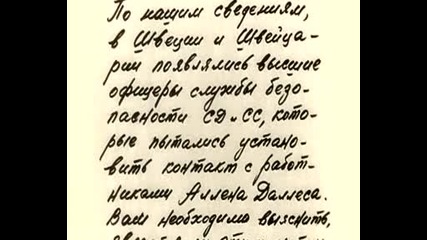 По нашим сведениям,
в Швеции и Швейца-
рии появлялись высшие
офицеры службы безо-
пасности СД и СС, кото-
рые пытались устано-
вить контакт с работ-
никами Аллена Даллеса.
Вам необходимо выяснить,